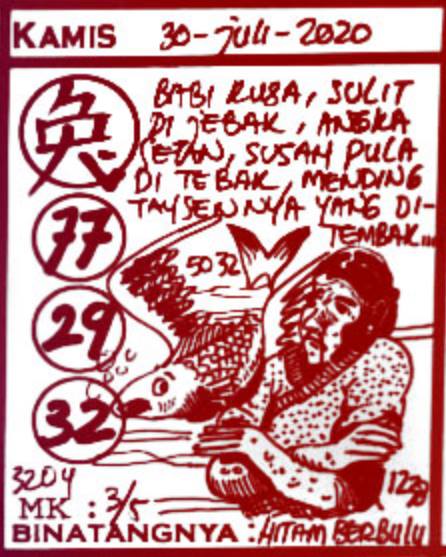 KAMIS 30-juli-2020
兔
BABI RUSA, SULIT
DI JEBAK, ANGKA
SETAN, SUSAH PULA
DI TEBAK, MENDING
TAYSEN NYA YANG DI-
TEMBAK...
77
5032
29
32
3204
MK : 3/5
BINATANGNYA : HITAM BERBULU